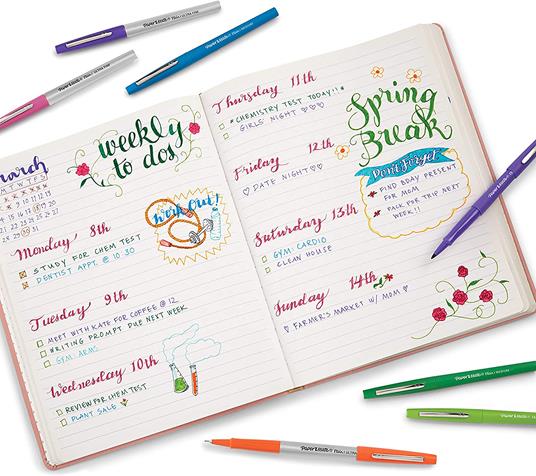 Paper Mate Flair ULTRA FINE
Paper Mate Flair ULTRA FINE
Paper Mate Flair
March
weekly
to dos
Monday 8th
STUDY FOR CHEM TEST
DENTIST APPT. @ 10:30
Work Out!
Tuesday 9th
MEET WITH KATE FOR COFFEE @ 12
WRITING PROMPT DUE NEXT WEEK
GYM: ARMS
Wednesday 10th
REVIEW FOR CHEM TEST
PLANT SALE
Thursday 11th
*CHEMISTRY TEST TODAY!!*
GIRLS NIGHT ♡♡♡
Friday 12th
♡ DATE NIGHT ♡♡
Saturday 13th
GYM: CARDIO
CLEAN HOUSE
Sunday 14th
♡ FARMER'S MARKET W/ MOM ♡
Spring
Break
Don't Forget
* FIND BDAY PRESENT
FOR MOM
* PACK FOR TRIP NEXT
WEEK!!
Paper Mate Flair
Paper Mate Flair
Paper Mate Flair